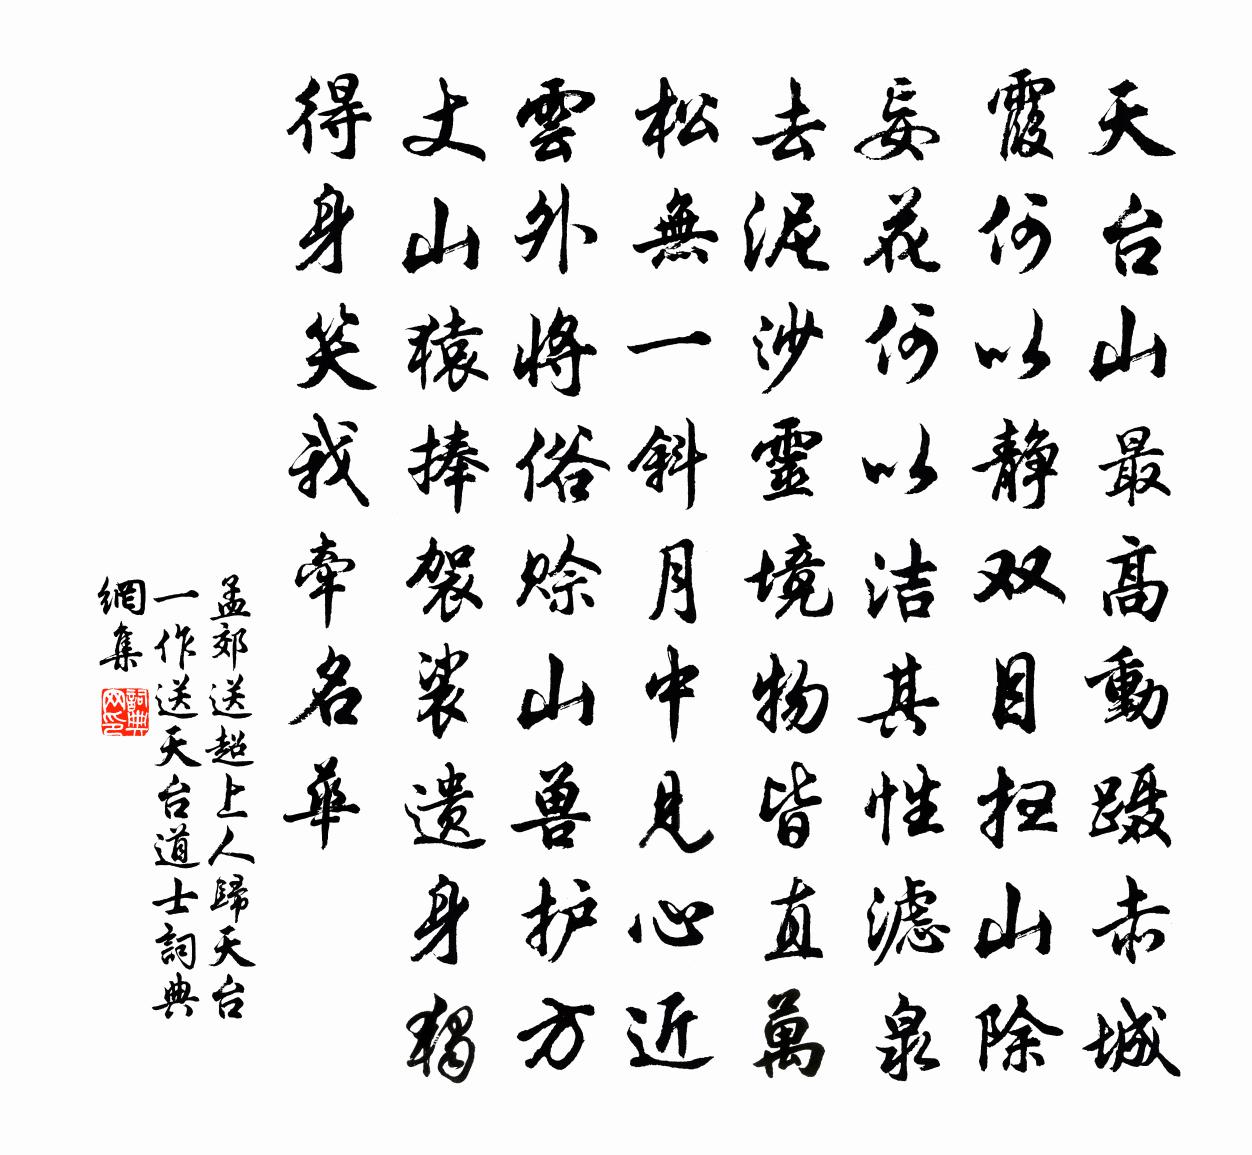 天台山最高動蹑赤城
霞何以静双目扫山除
妄花何以洁其性滤泉
去泥沙靈境物皆直萬
松無一斜月中見心近
雲外將俗赊山兽护方
丈山猿捧袈裟遗身獨
得身笑我牽名華
孟郊送超上人歸天台
一作送天台道士詞典
網集
詞典
网印